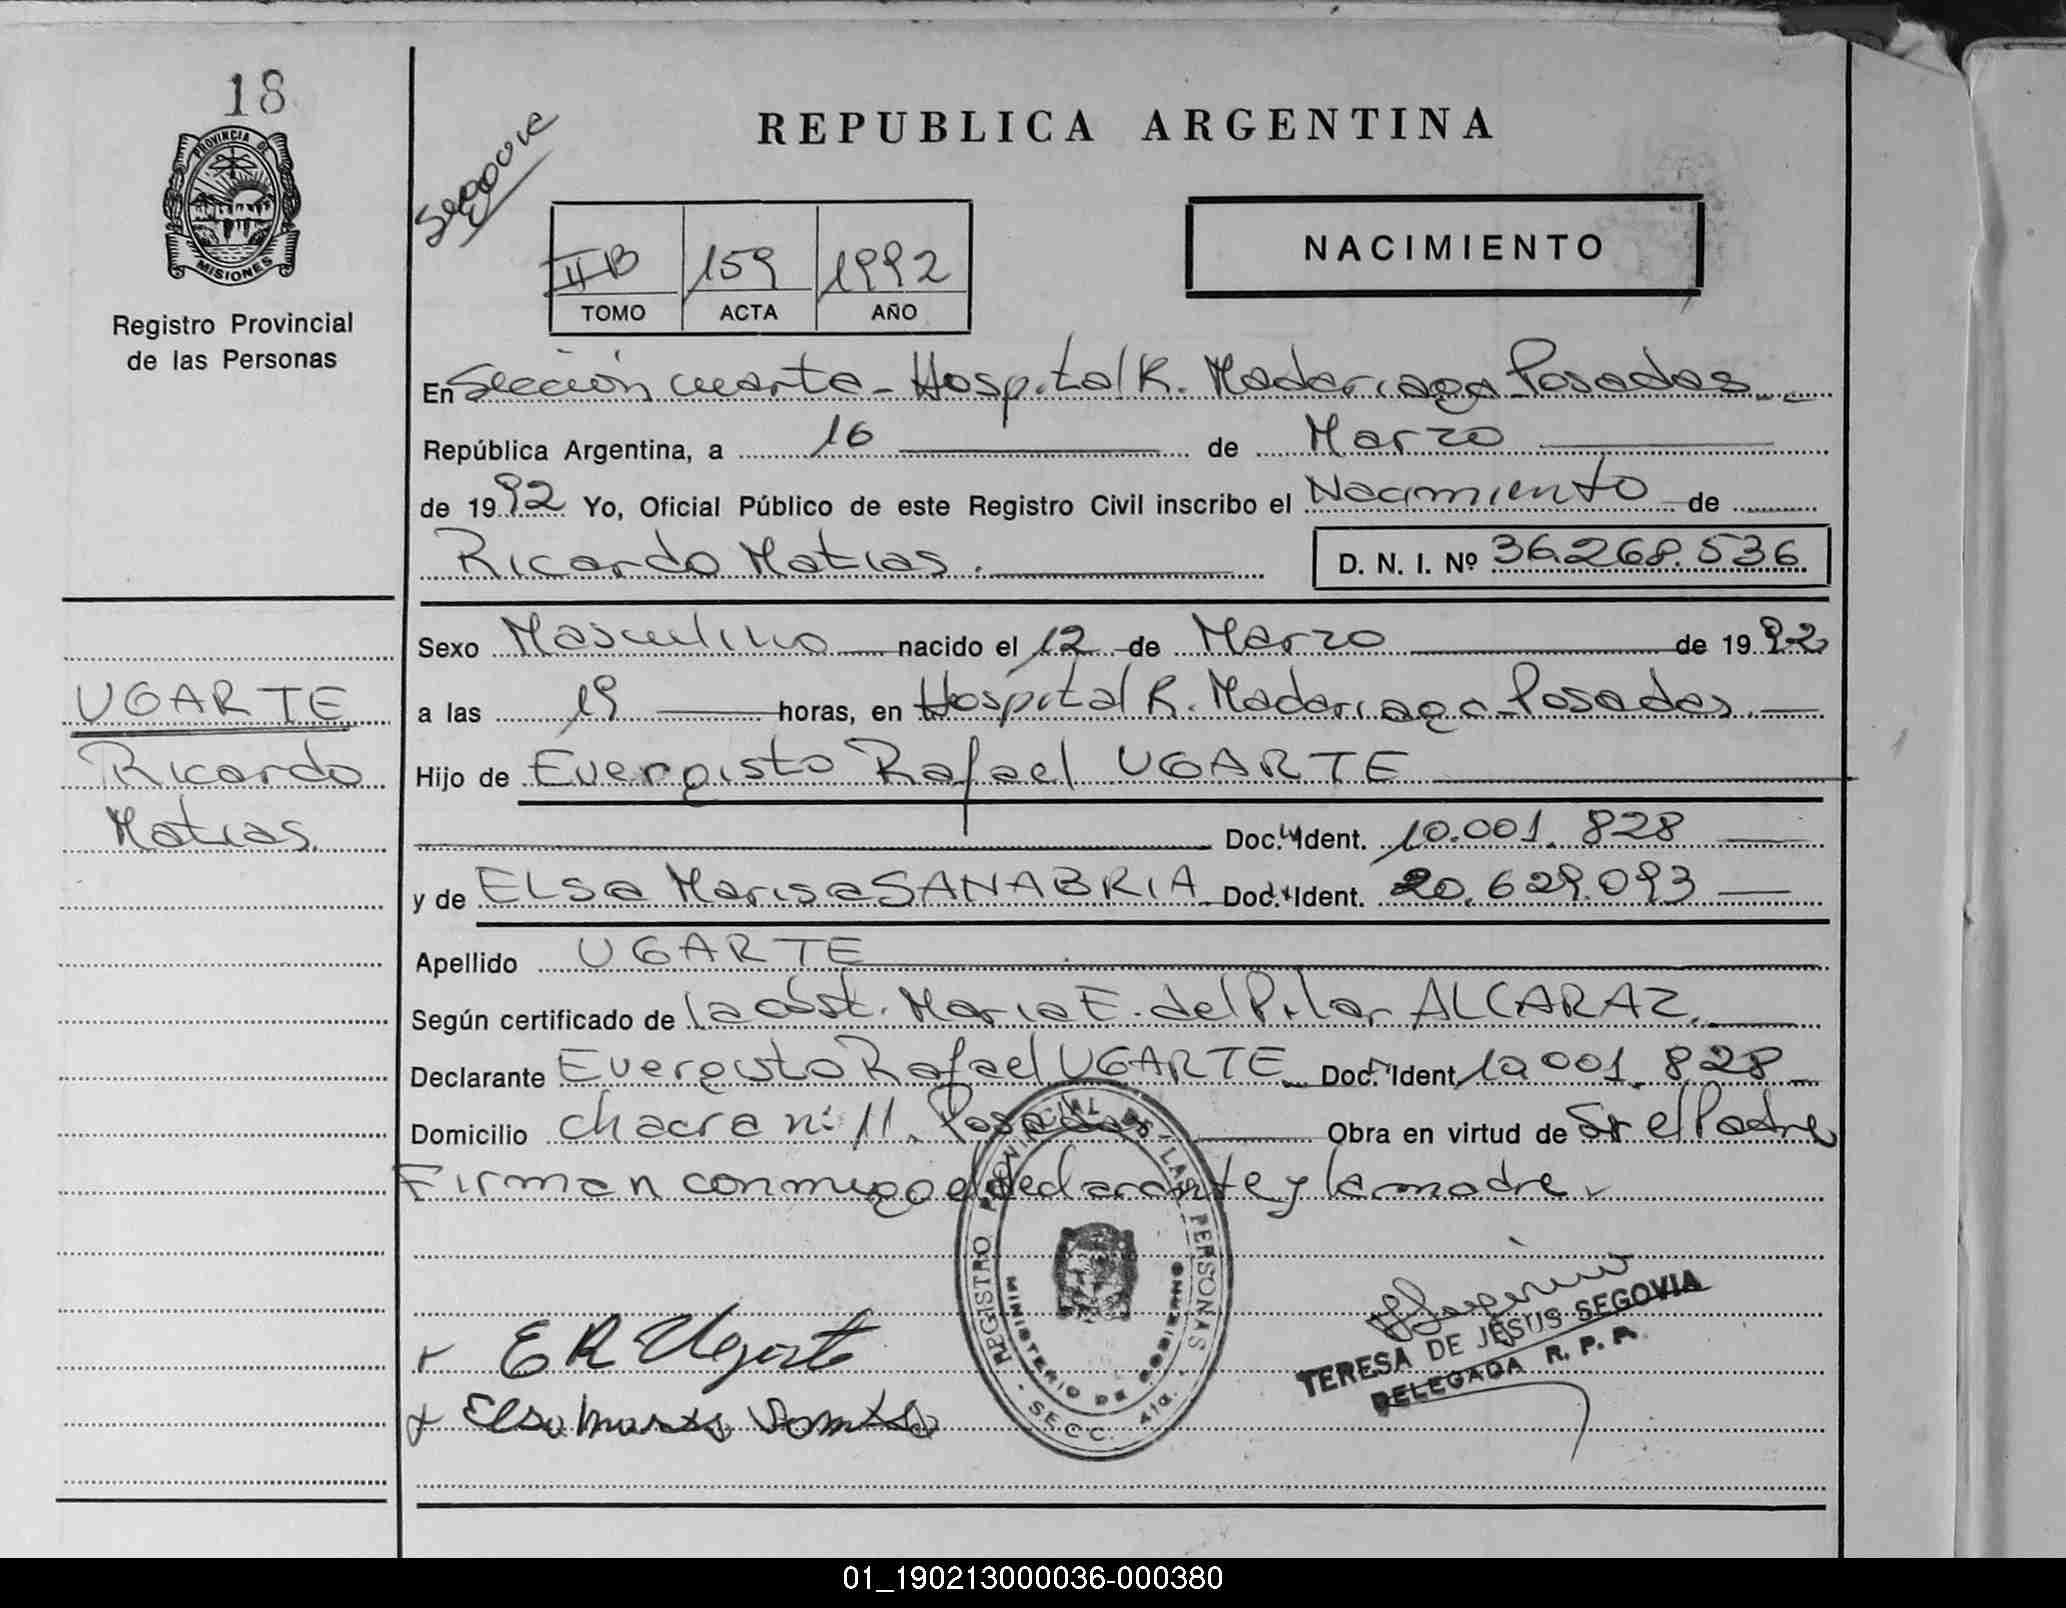 18
PROVINCIA DE
MISIONES
Registro Provincial
de las Personas
UGARTE
Ricardo
Matias.
REPUBLICA ARGENTINA
II B 159 1992
TOMO ACTA AÑO
NACIMIENTO
En Sección cuarta - Hospital R. Madariaga - Posadas
República Argentina, a 16 de Marzo
de 1992 Yo, Oficial Público de este Registro Civil inscribo el Nacimiento de
Ricardo Matias. D. N. I. Nº 36.268.536
Sexo Masculino nacido el 12 de Marzo de 1992
a las 19 horas, en Hospital R. Madariaga - Posadas.
Hijo de Evergisto Rafael UGARTE
Doc. Ident. 10.001.828
y de ELSa Marisa SANABRIA Doc. Ident. 20.629.093
Apellido UGARTE
Según certificado de la obst. Maria E. del Pilar ALCARAZ.
Declarante Evergisto Rafael UGARTE Doc. Ident. 10.001.828
Domicilio chacra nº 11. Posadas Obra en virtud de Sr el Padre
Firman conmigo el declarante y la madre.
E R Ugarte
REGISTRO PROVINCIAL DE LAS PERSONAS
MINISTERIO DE GOBIERNO
- SECC. 4ta. -
TERESA DE JESUS SEGOVIA
DELEGADA R. P. P.
01_190213000036-000380